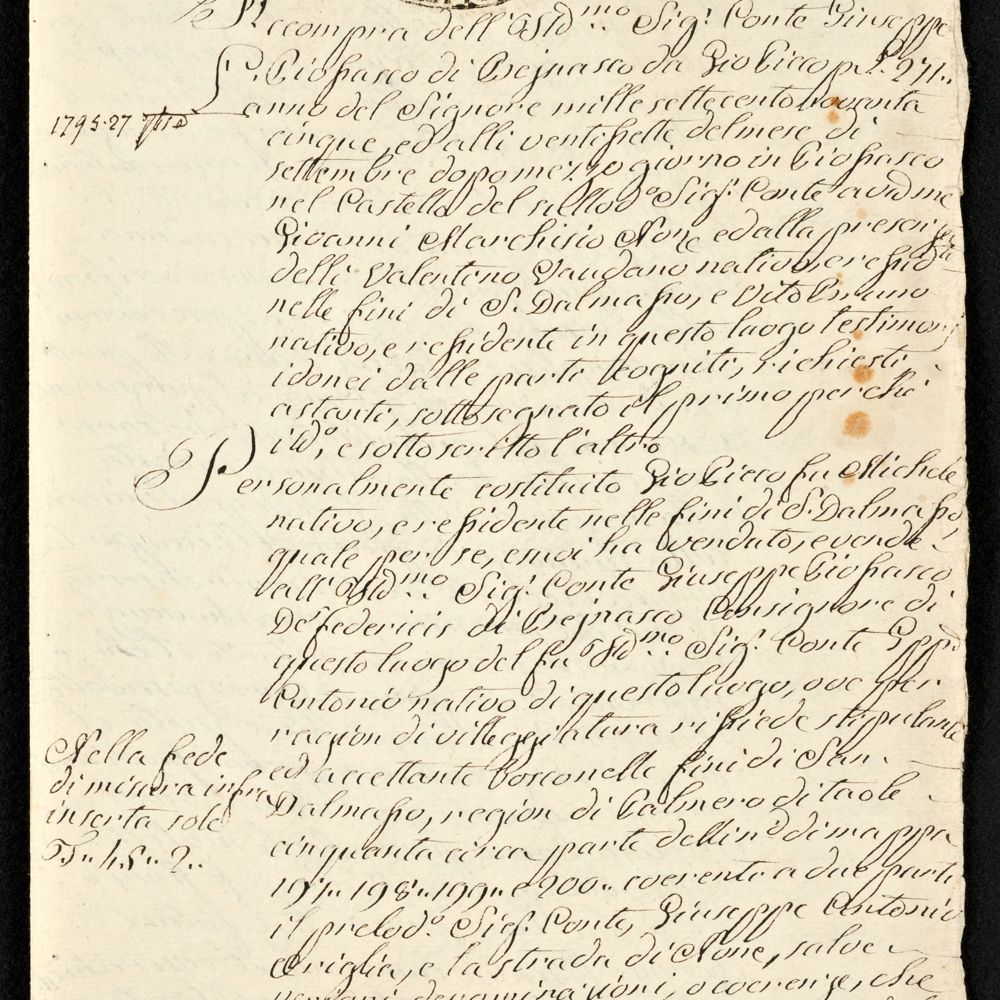 Accompra dell' Ill.mo Sig.r Conte Giuseppe
Piossasco di Bejnasco da Gio Picco p. L. 271..
1795. 27 7bre
L'anno del Signore mille settecento novanta
cinque, ed alli ventisette del mese di
settembre dopo mezzo giorno in Piossasco
nel Castello del sullod.o Sig.r Conte avid me
Giovanni Marchisio Not.e ed alla presen
delli Valentino Vaudano nativo, e resid.te
nelle fini di S. Dalmasso, e Vito Bruno
nativo, e residente in questo luogo testimonj
idonei dalle parti cogniti, richiesti
astanti, sottosegnato il primo perchè
ill.o, e sottoscritto l'altro
Personalmente costituito Gio Picco fu Michele
nativo, e residente nelle fini di S. Dalmasso,
quale per se, e suoi ha venduto, e vende
all' Ill.mo Sig.r Conte Giuseppe Piossasco
De Federicis di Bejnasco Consignore di
questo luogo del fu Ill.mo Sig.r Conte Gepp.e
Antonio nativo di questo luogo, ove per
ragion di villeggiatura risiede stipulante
ed accettante bosco nelle fini di San
Dalmasso, region di Palmero di taole
cinquanta circa parte delli n.i di mappa
197.. 198.. 199.. e 200.. coerenti a due parti
il prelod.o Sig.r Conte, Giuseppe Antonio
Ariglia, e la strada di None, salve
veriori denominazioni, o coerenze, che
Nella fede
di misura infra
inserta sole
T.. 45.. 2..